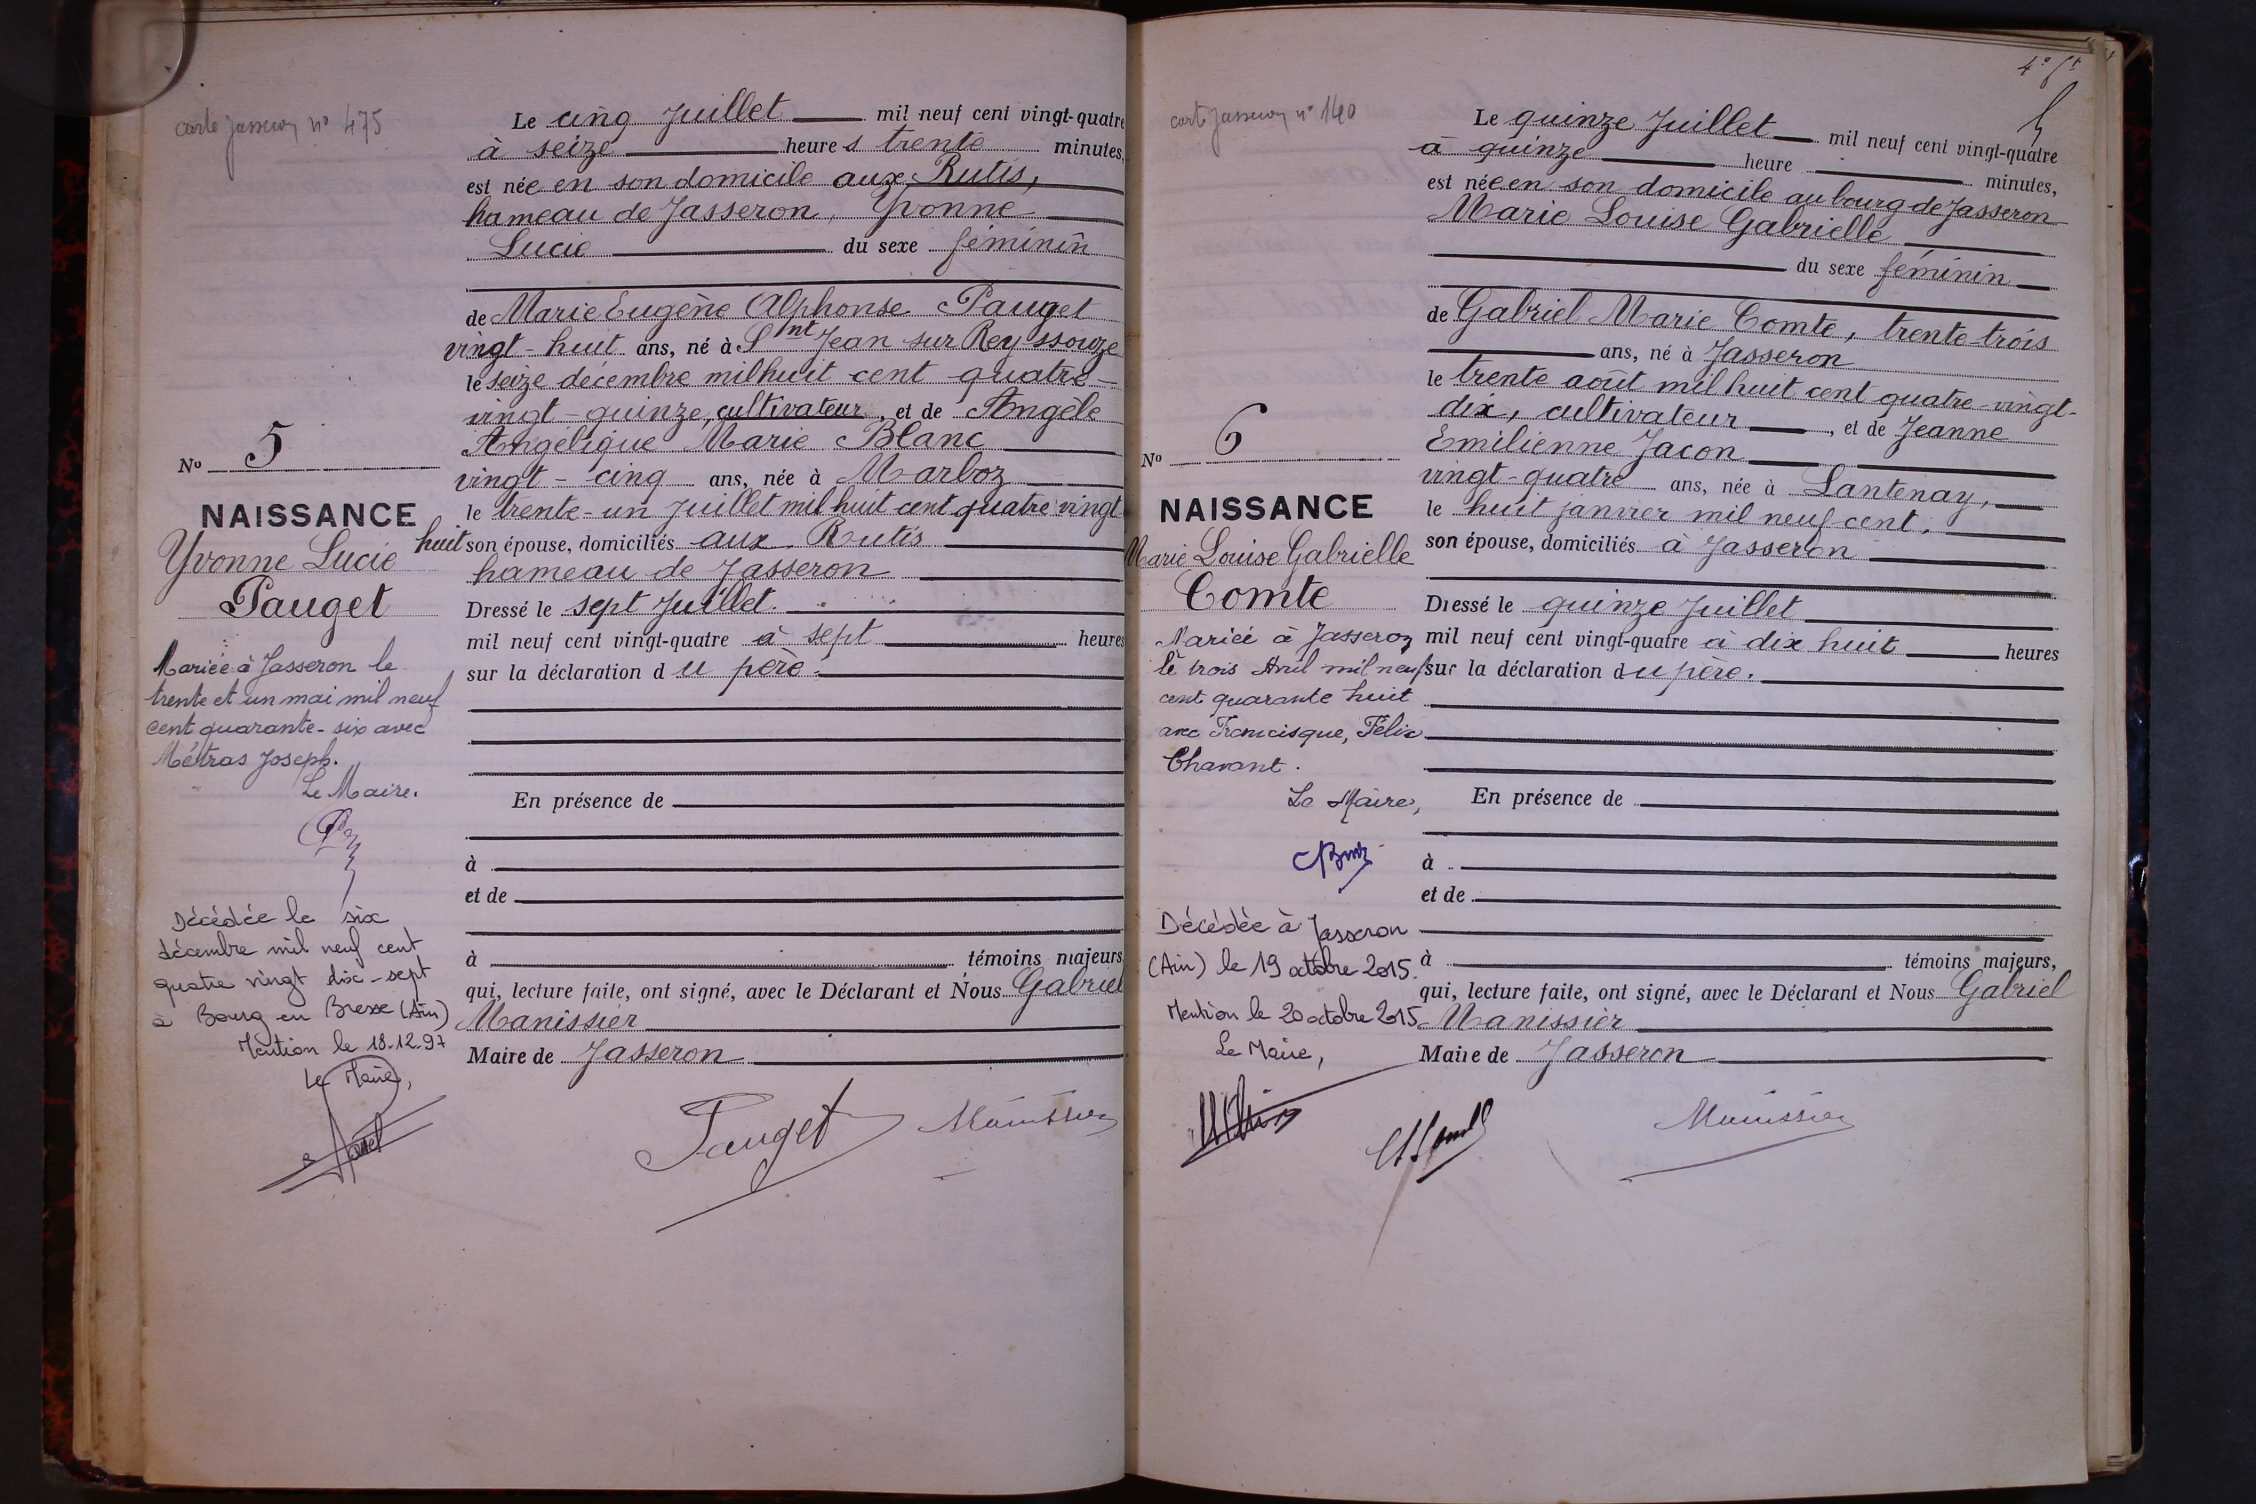 carte Jasseron n° 475
Le cinq Juillet mil neuf cent vingt-quatre
à seize heures trente minutes,
est née en son domicile aux Rutis,
hameau de Jasseron, Yvonne
Lucie du sexe féminin
de Marie Eugène Alphonse Pauget
vingt-huit ans, né à Snt Jean sur Reyssouze
le seize décembre mil huit cent quatre-
vingt-quinze, cultivateur, et de Angèle
Angélique Marie Blanc
vingt-cinq ans, née à Marboz
le trente-un Juillet mil huit cent quatre vingt
huit son épouse, domiciliés aux Rutis
hameau de Jasseron
Dressé le sept Juillet.
mil neuf cent vingt-quatre à sept heures
sur la déclaration du père.
En présence de
à
et de
à témoins majeurs
qui, lecture faite, ont signé, avec le Déclarant et Nous Gabriel
Manissier
Maire de Jasseron
Pauget Manissier
No 5
NAISSANCE
Yvonne Lucie
Pauget
Mariée à Jasseron le
trente et un mai mil neuf
cent quarante-six avec
Métras Joseph.
Le Maire.
Décédée le six
décembre mil neuf cent
quatre vingt dix-sept
à Bourg en Bresse (Ain)
Mention le 18.12.97
Le Maire,
carte Jasseron n° 140
Le quinze Juillet mil neuf cent vingt-quatre
à quinze heure minutes,
est née en son domicile au bourg de Jasseron
Marie Louise Gabrielle
du sexe féminin
de Gabriel Marie Comte, trente-trois
ans, né à Jasseron
le trente août mil huit cent quatre-vingt-
dix, cultivateur, et de Jeanne
Emilienne Jacon
vingt-quatre ans, née à Lantenay,
le huit janvier mil neuf cent.
son épouse, domiciliés à Jasseron
Dressé le quinze Juillet
mil neuf cent vingt-quatre à dix huit heures
sur la déclaration du père.
En présence de
à
et de
à témoins majeurs,
qui, lecture faite, ont signé, avec le Déclarant et Nous Gabriel
Manissier
Maire de Jasseron
Manissier
No 6
NAISSANCE
Marie Louise Gabrielle
Comte
Mariée à Jasseron
le trois Avril mil neuf
cent quarante huit
avec Francisque, Félix
Chavant.
Le Maire,
Décédée à Jasseron
(Ain) le 19 octobre 2015.
Mention le 20 octobre 2015
Le Maire,